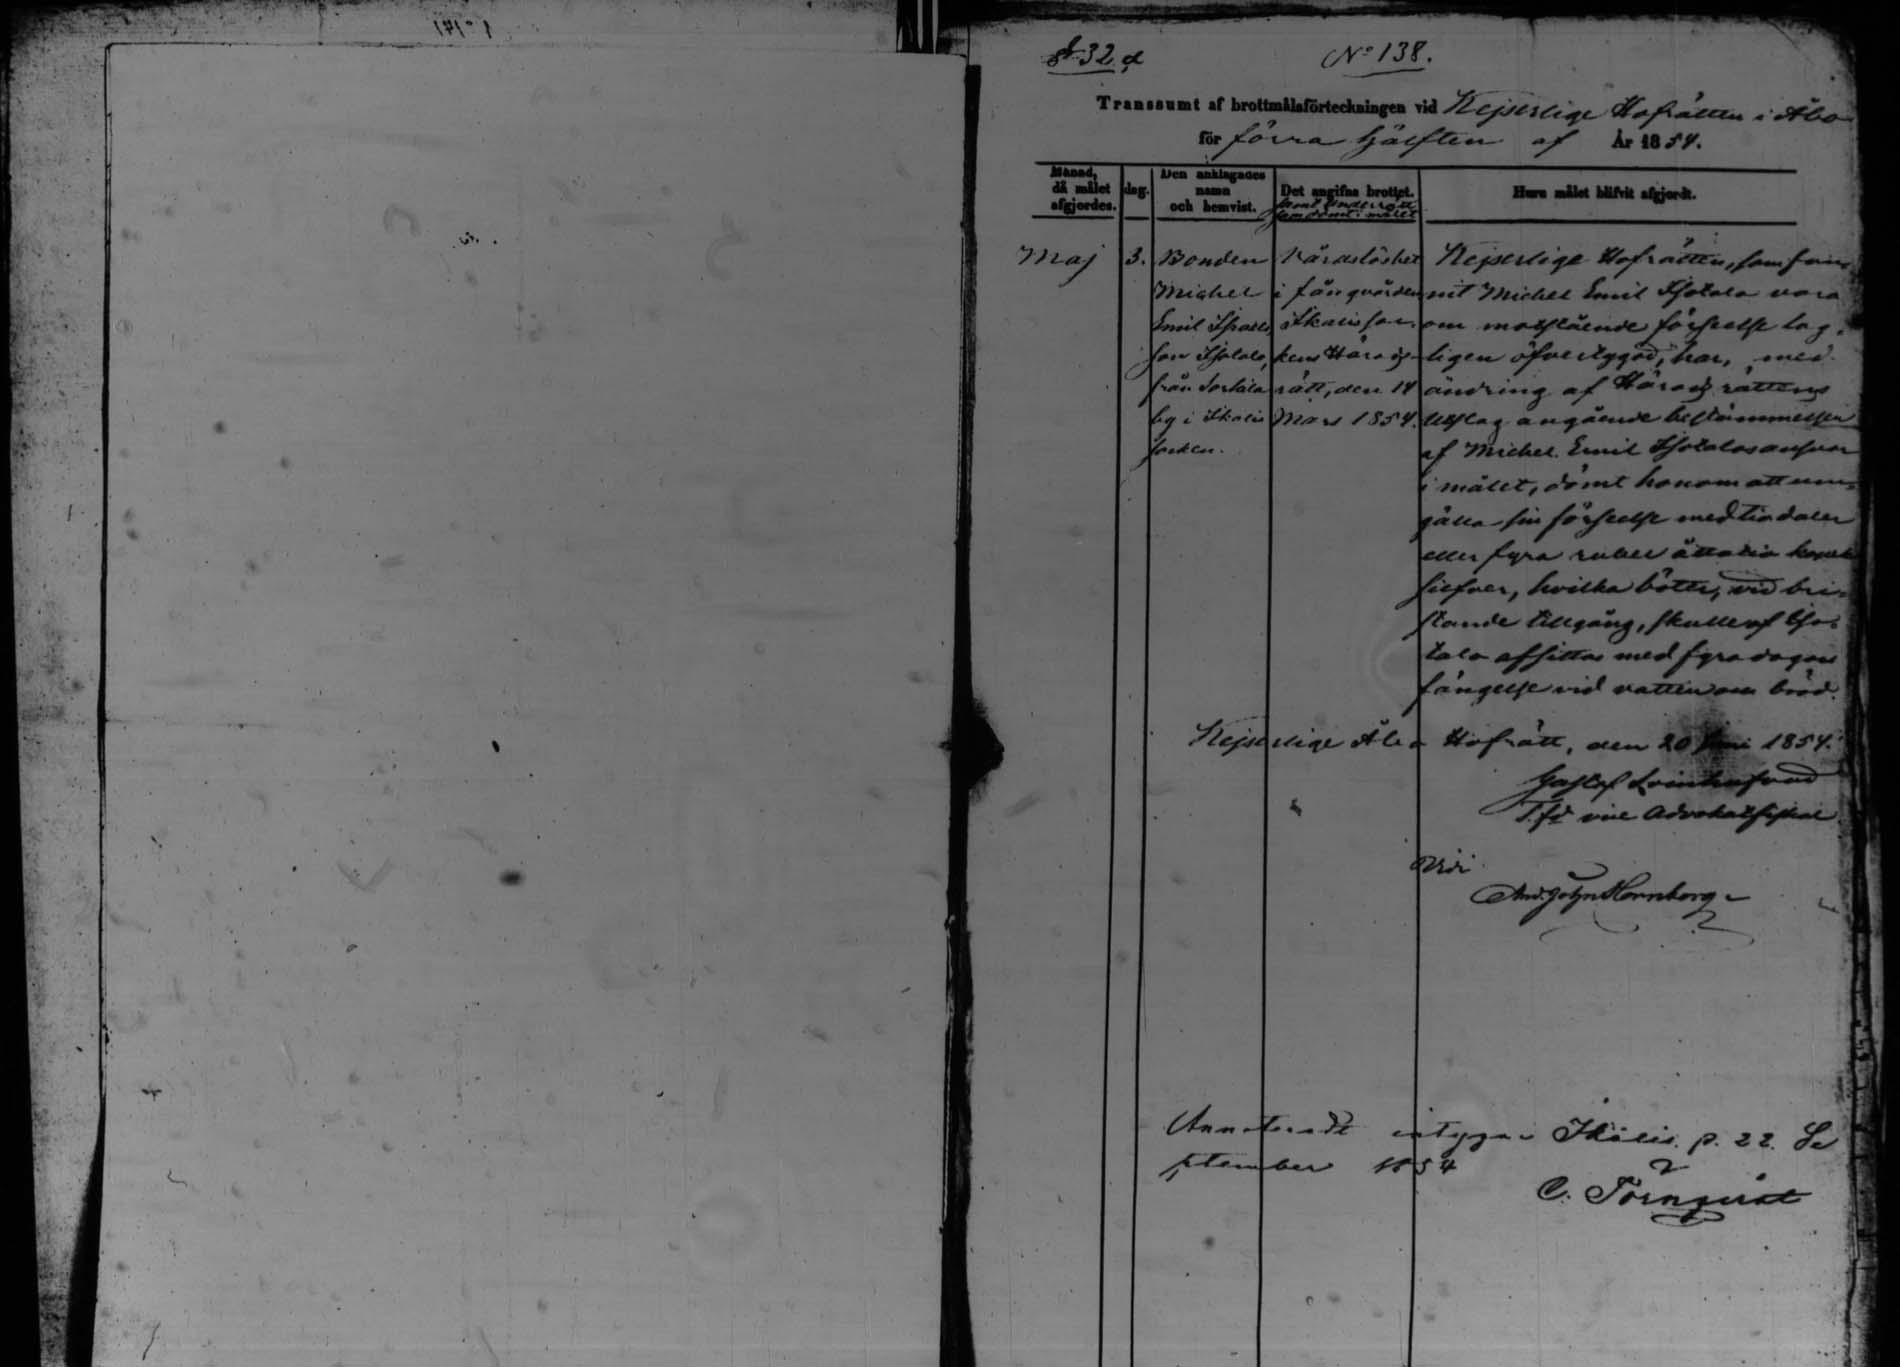 §32 d
No 138.
Transsumt af brottmålsförteckningen vid Kejserlige Hofrätten i Åbo
för förra hjälften af År 1854.
Månad, då målet afgjordes.
dag.
Den anklagades namn och hemvist.
Det angifna brottet.
samt Underrätt som dömt i målet
Huru målet blifvit afgjordt.
Maj
3.
Bonden
Michel
Emil
son
från
by i Ikalis
socken.
Vårdslöshet
i fångvården
Ikalis soc-
kens Härads-
rätt, den 14
Mars 1854.
Kejserlige Hofrätten, som fun-
nit Michel Emil vara
om motstående förseelse lag-
ligen öfvertygad, har, med
ändring af Häradsrättens
Utslag angående bestämmelsen
af Michel Emil ansvar
i målet, dömt honom att um-
gälla sin förseelse med tio daler
eller fyra rubel åttatio kopek
silfver, hvilka böter, vid bri-
stande tillgång, skulle af
afsittas med fyra dagars
fängelse vid vatten och bröd.
Kejserlige Åbo Hofrätt, den 20 Juni 1854.
Gustaf
T.f.d vice Advokatfiskal
Vidi
And. John Hornborg
Annoteradt intygar Ikalis p. 22. Se
ptember 1854
C. Törnqvist